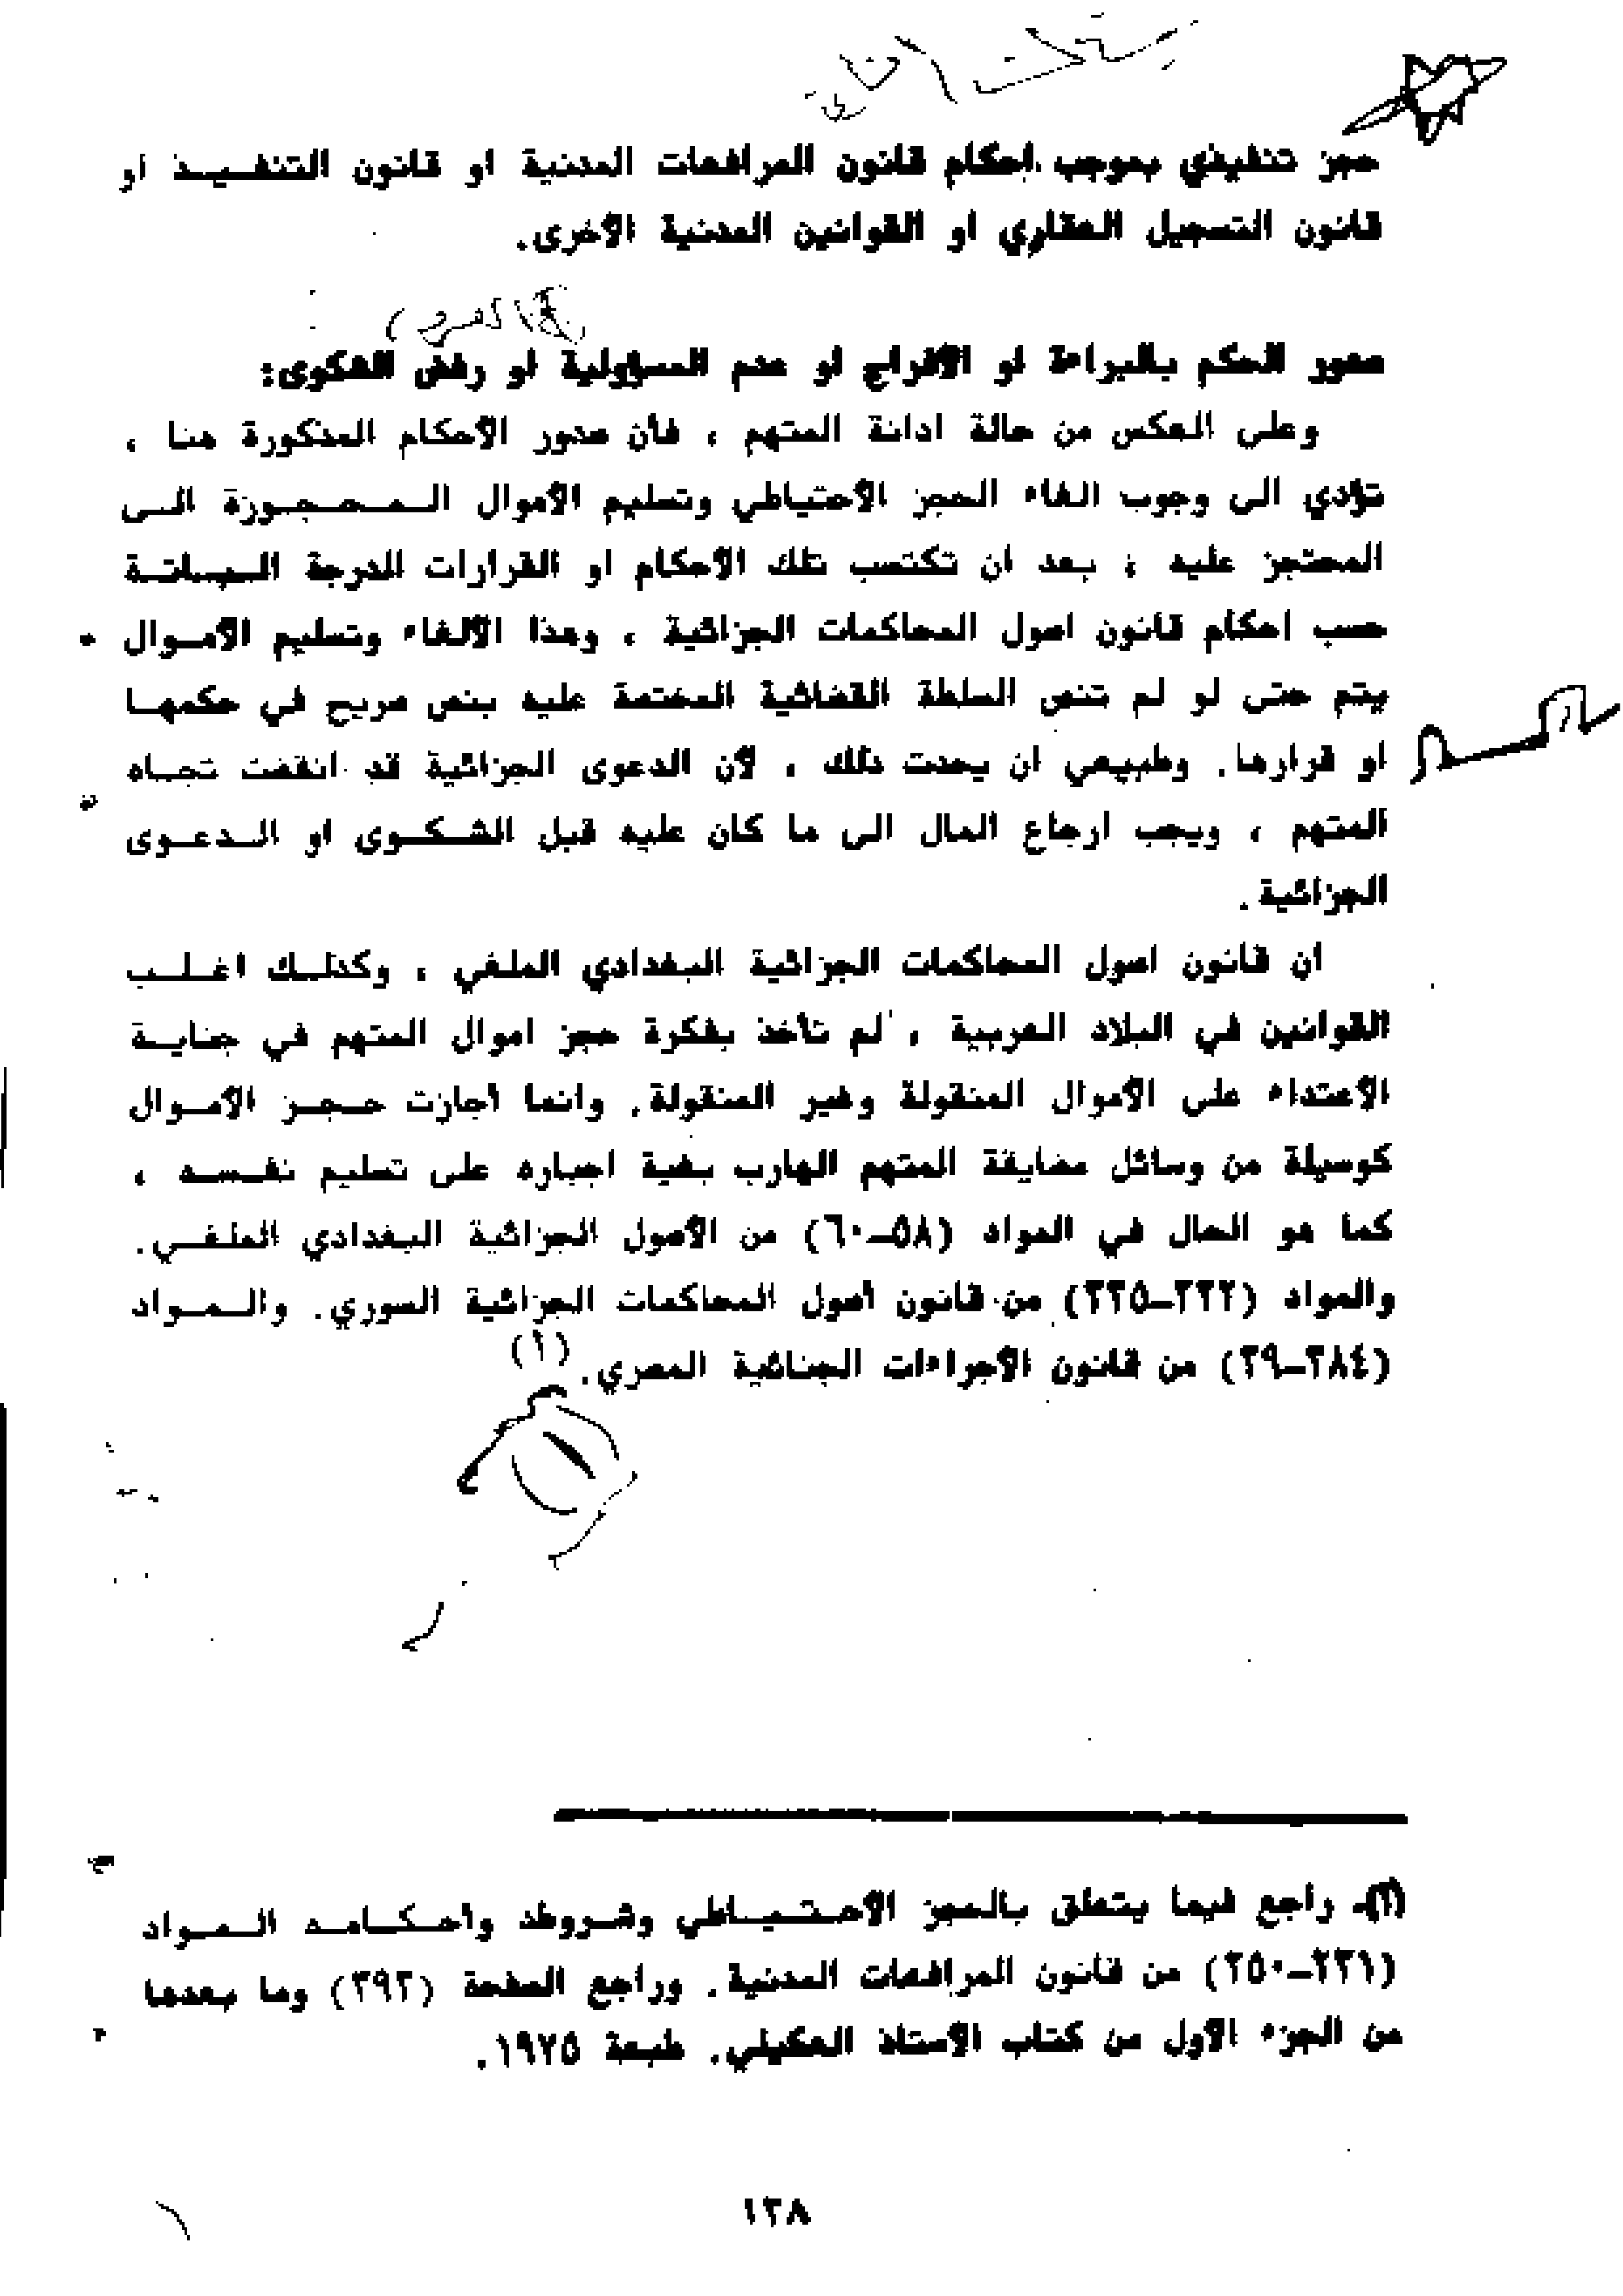 حجز تنفيذي بموجب احكام قانون المرافعات المدنية او قانون التنفيذ او
قانون التسجيل العقاري او القوانين المدنية الاخرى.
صدور الحكم بالبراءة او الافراج او عدم المسؤولية او رفض الشكوى:
وعلى العكس من حالة ادانة المتهم ، فأن صدور الأحكام المذكورة هنا ،
تؤدي الى وجوب الغاء الحجز الأحتياطي وتسليم الأموال المحجوزة الى
المحتجز عليه ، بعد ان تكتسب تلك الأحكام او القرارات الدرجة الباتة
حسب احكام قانون اصول المحاكمات الجزائية ، وهذا الألغاء وتسليم الأموال
يتم حتى لو لم تنص السلطة القضائية المختصة عليه بنص صريح في حكمها
او قرارها. وطبيعي ان يحدث ذلك ، لأن الدعوى الجزائية قد انقضت تجاه
المتهم ، ويجب ارجاع المال الى ما كان عليه قبل الشكوى او الدعوى
الجزائية.
ان قانون اصول المحاكمات الجزائية البغدادي الملغي ، وكذلك اغلب
القوانين في البلاد العربية ، لم تأخذ بفكرة حجز اموال المتهم في جناية
الأعتداء على الأموال المنقولة وغير المنقولة. وانما أجازت حجز الأموال
كوسيلة من وسائل مضايقة المتهم الهارب بغية اجباره على تسليم نفسه ،
كما هو الحال في المواد (٥٨-٦٠) من الأصول الجزائية البغدادي الملغي.
والمواد من قانون أصول المحاكمات الجزائية السوري. والمواد
من قانون الأجراءات الجنائية المصري. (١)
(١)ـ راجع فيما يتعلق بالحجز الأحتياطي وشروطه وأحكامه المواد
(٢٣١-٢٥٠) من قانون المرافعات المدنية. وراجع الصفحة وما بعدها
من الجزء الأول من كتاب الأستاذ العكيلي. طبعة ١٩٧٥.
١٢٨